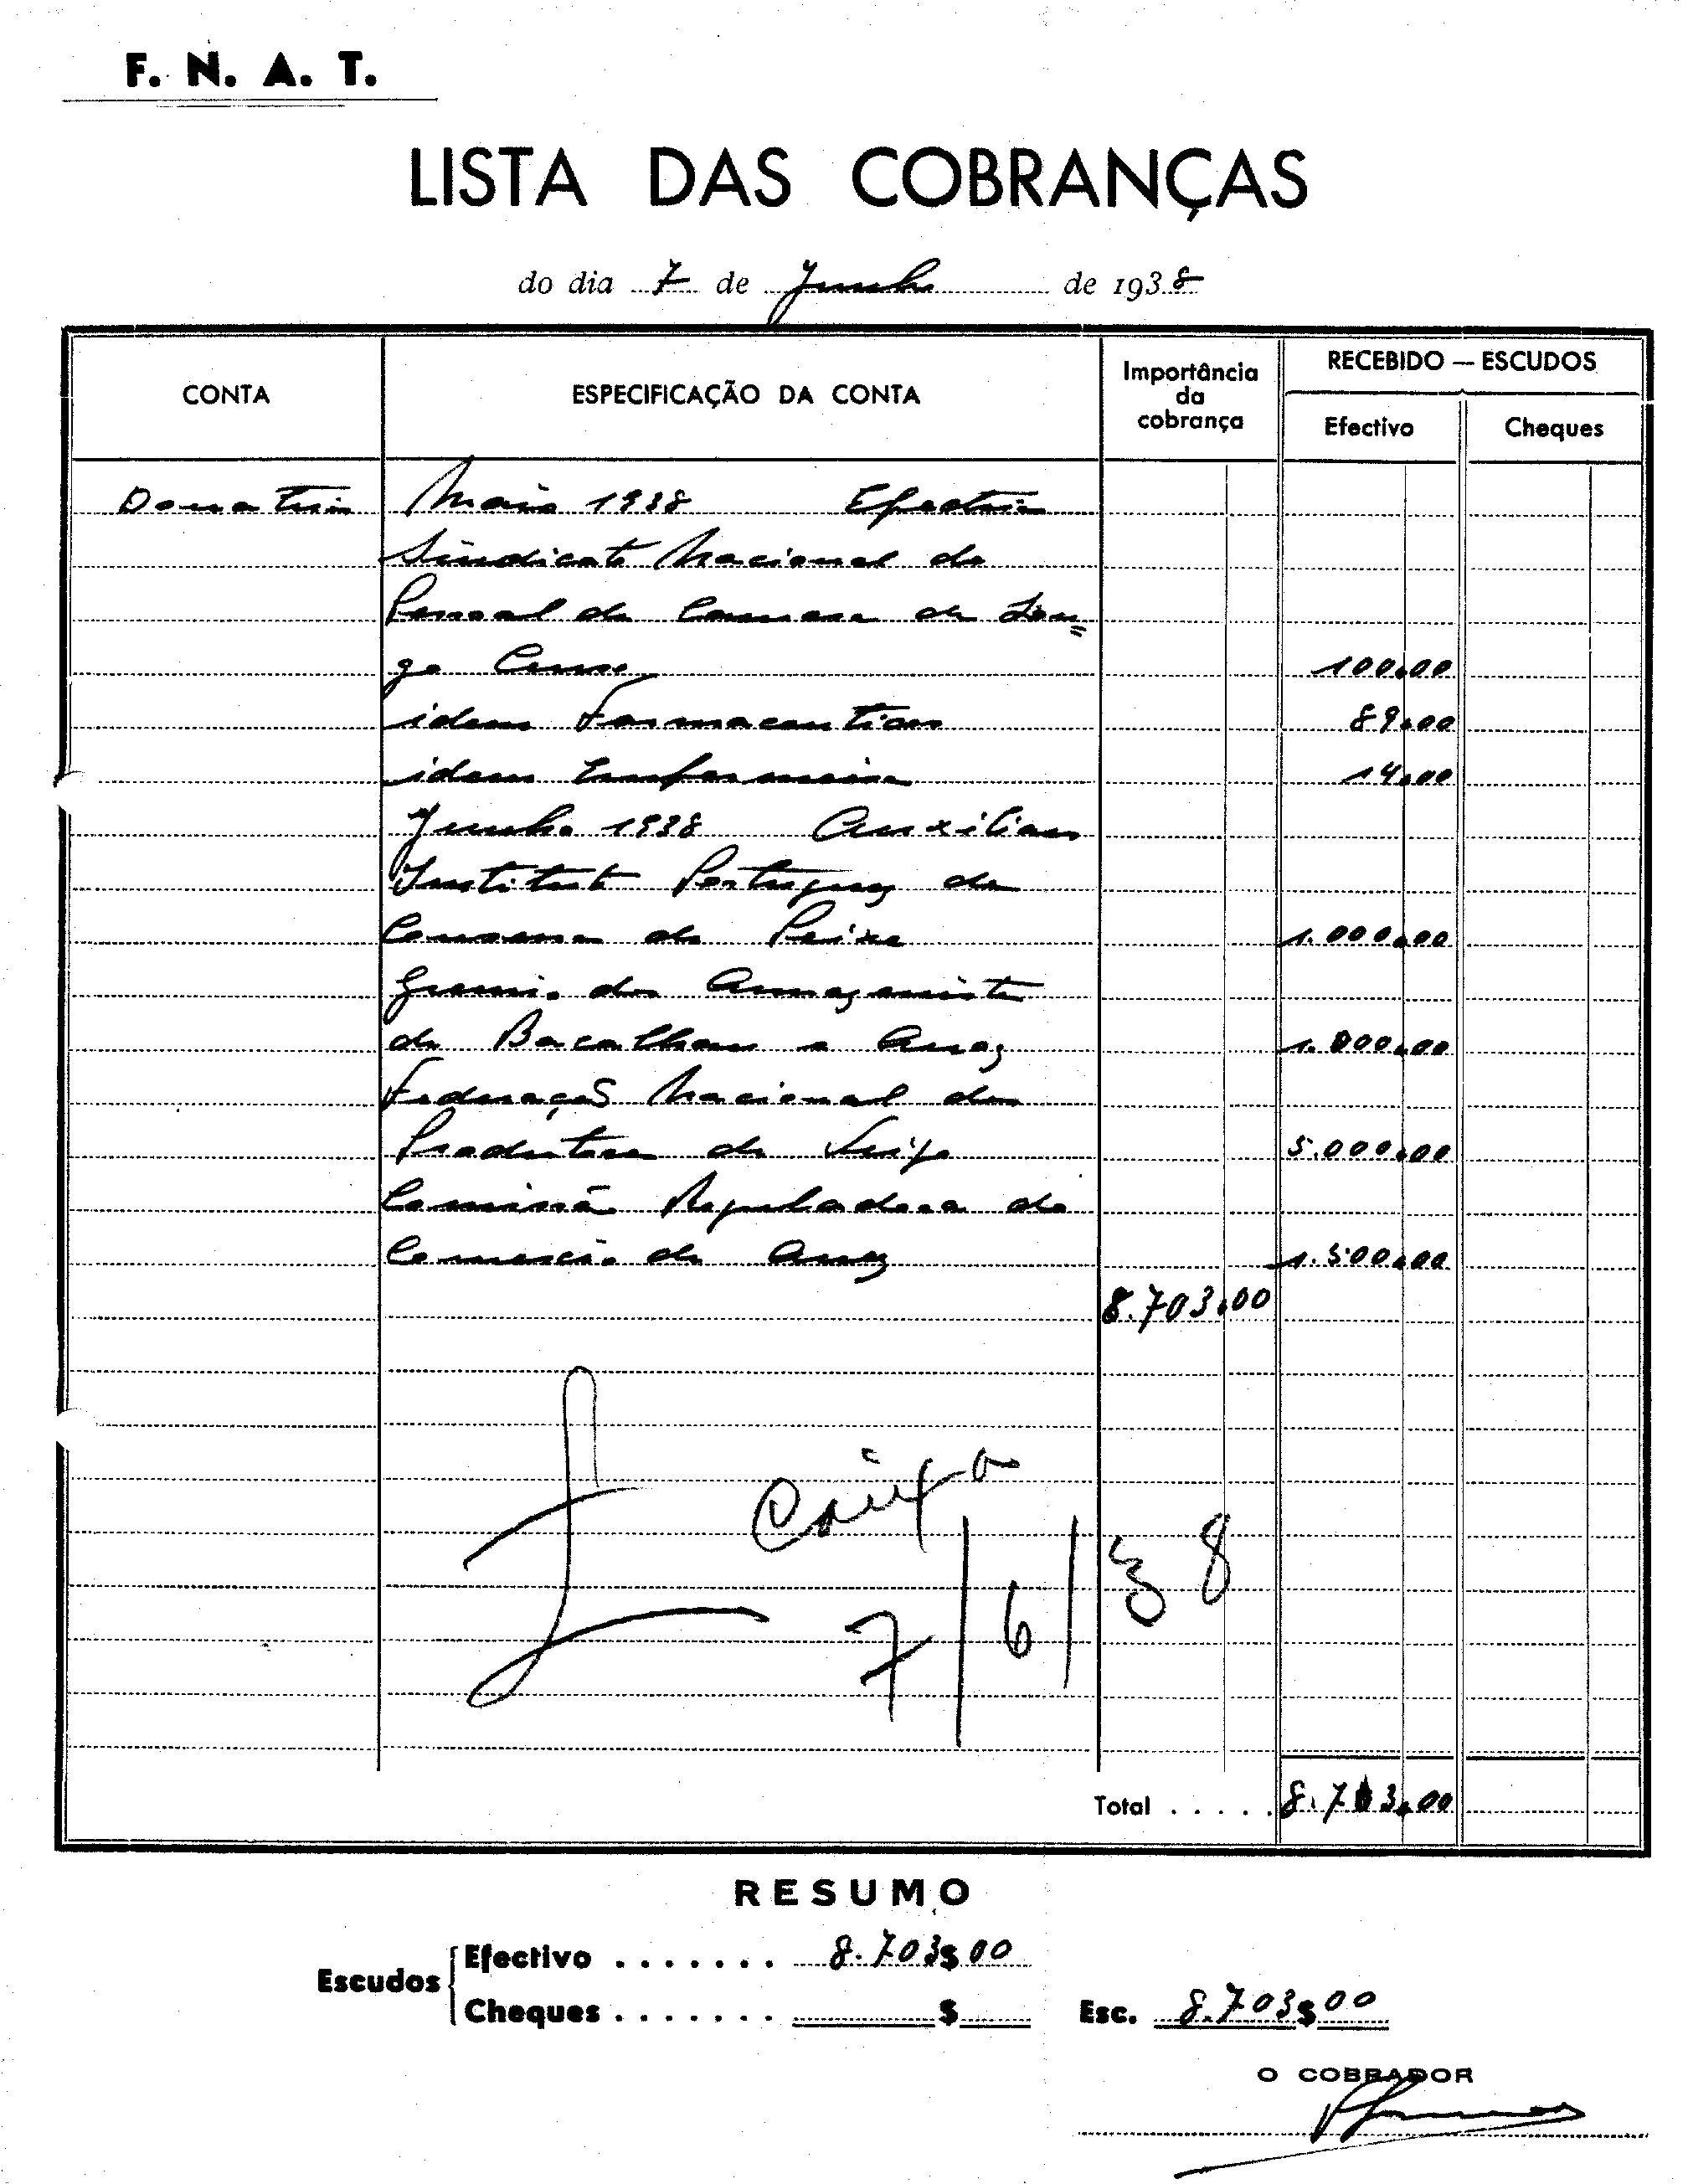 F. N. A. T.
LISTA DAS COBRANÇAS
do dia 7 de Junho de 1938
CONTA
ESPECIFICAÇÃO DA CONTA
Importância
da
cobrança
RECEBIDO — ESCUDOS
Efectivo
Cheques
Donativos Maio 1938
Sindicato Nacional do
Pessoal da de Lon=
go Curso 100.00
idem Farmaceuticos 89.00
idem 14.00
Junho 1938 Auxiliar
Instituto Portuguez de
Conserva de Peixe 1.000.00
Gremio dos Armazenistas
de Bacalhau e Arroz 1.000.00
Federação Nacional dos
Produtores de Trigo 5.000.00
Comissão Reguladora do
Comercio de Arroz 1.500.00
8.703.00
Caixa
7/6/38
Total . . . . . 8.703.00
RESUMO
Escudos
Efectivo . . . . . . . 8.703$00
Cheques . . . . . . . $
Esc. 8.703$00
O COBRADOR